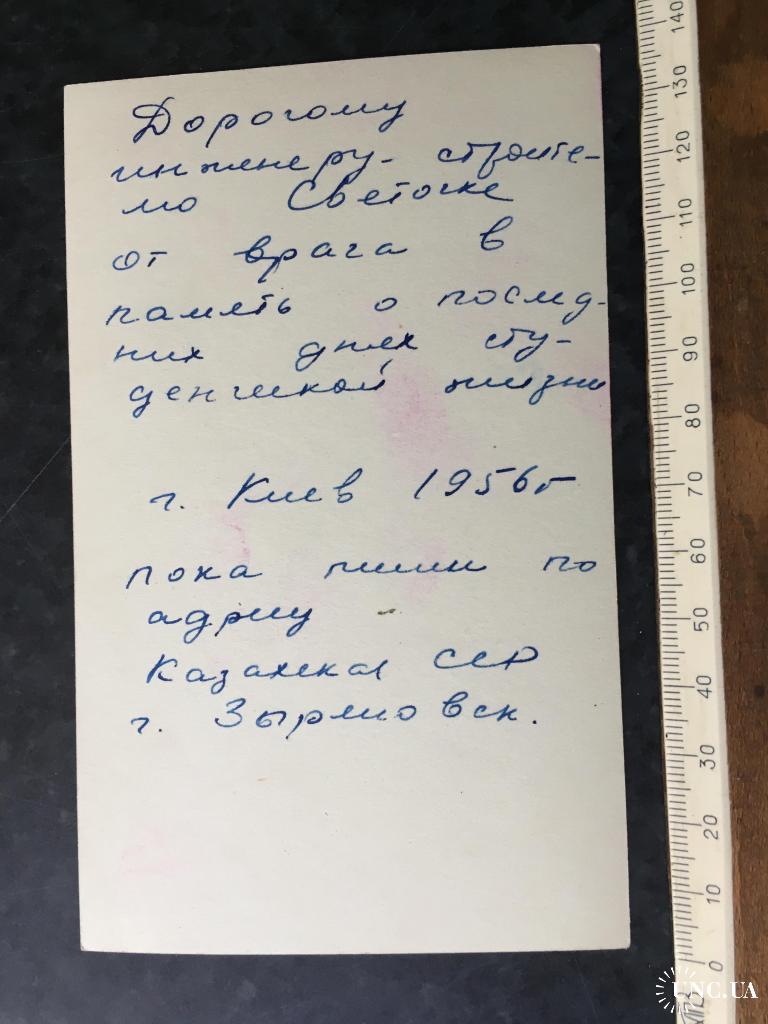 Дорогому
инженеру- строите-
лю Светочке
от врага в
память о послед-
них днях сту-
денческой жизни
г. Киев 1956г
пока пиши по
адресу
Казахская ССР
г. Зыряновск.
140
130
120
110
100
90
80
70
60
50
40
30
20
10
0
UNC.UA